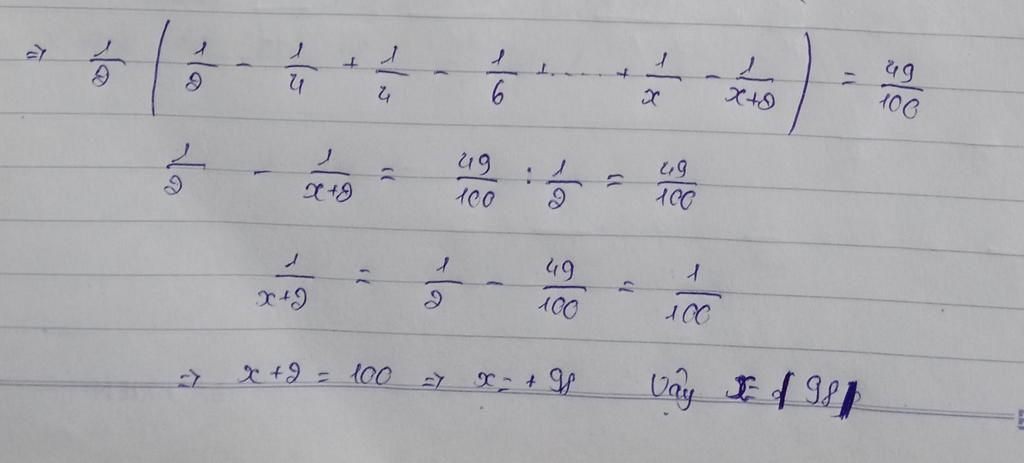 ⇒ 1/2 ( 1/2 - 1/4 + 1/4 - 1/6 + ..... + 1/x - 1/(x+2) ) = 49/100
1/2 - 1/(x+2) = 49/100 : 1/2 = 49/100
1/(x+2) = 1/2 - 49/100 = 1/100
⇒ x+2 = 100 ⇒ x = +98 Vậy x = 98